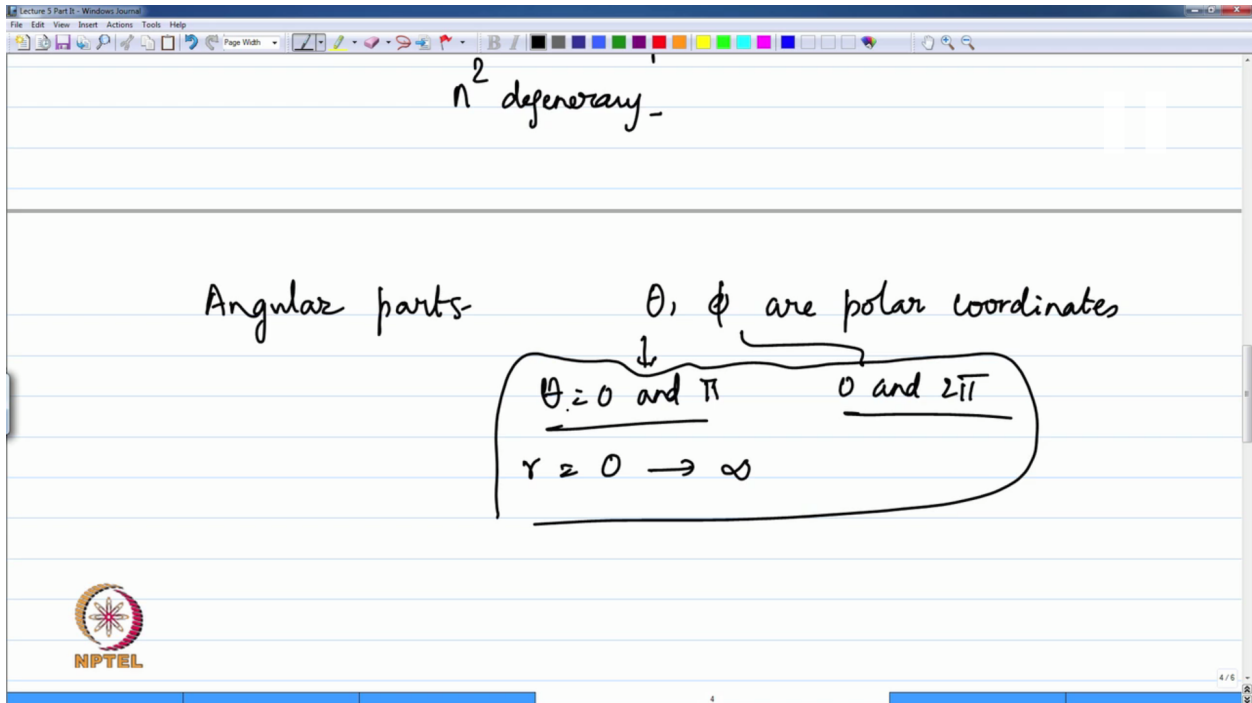 Lecture 5 Part II - Windows Journal
File Edit View Insert Actions Tools Help
Page Width
n² degeneracy -
Angular parts- θ, ϕ are polar coordinates
θ = 0 and π 0 and 2π
r = 0 → ∞
NPTEL
4/6
4